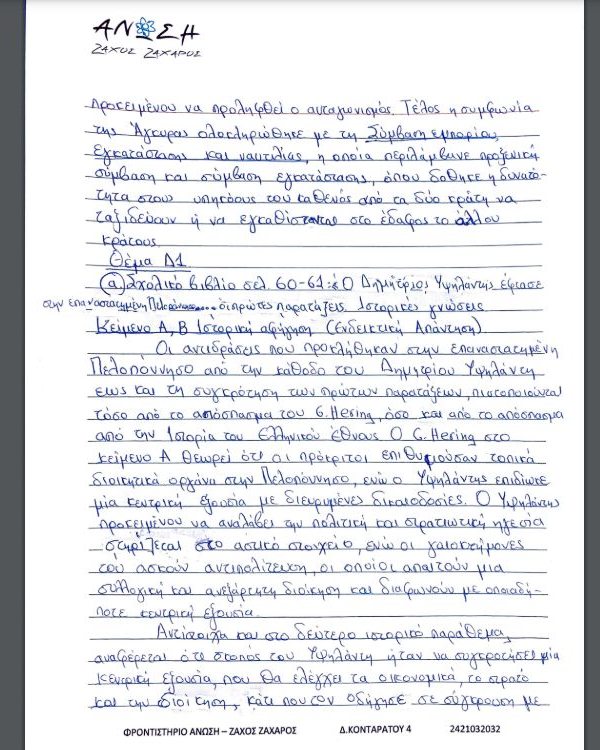 ΑΝΩΣΗ
ΖΑΧΟΣ ΖΑΧΑΡΟΣ
προκειμένου να προληφθεί ο ανταγωνισμός. Τέλος η συμφωνία
της Άγκυρας ολοκληρώθηκε με τη Σύμβαση εμπορίας,
εγκατάστασης και ναυτιλίας, η οποία περιλάμβανε προξενική
σύμβαση και σύμβαση εγκατάστασης, όπου δόθηκε η δυνατό-
τητα στους υπηκόους του καθενός από τα δύο κράτη να
ταξιδεύουν ή να εγκαθίστανται στο έδαφος το άλλου
κράτους.
Θέμα Δ1
α. Σχολικό βιβλίο σελ. 60-61: Ο Δημήτριος Υψηλάντης έφτασε
στην επαναστατημένη Πελοπόννησο...... οι πρώτες παρατάξεις. Ιστορικές γνώσεις
Κείμενο Α, Β Ιστορική αφήγηση (Ενδεικτική Απάντηση)
Οι αντιδράσεις που προκλήθηκαν στην επαναστατημένη
Πελοπόννησο από την κάθοδο του Δημητρίου Υψηλάντη
εως και τη συγκρότηση των πρώτων παρατάξεων, πιστοποιούνται
τόσο από το απόσπασμα του G. Hering, όσο και από το απόσπασμα
από την Ιστορία του Ελληνικού Έθνους. Ο G. Hering στο
κείμενο Α θεωρεί ότι οι πρόκριτοι επιθυμούσαν τοπικά
διοικητικά όργανα στην Πελοπόννησο, ενώ ο Υψηλάντης επιδίωκε
μία κεντρική εξουσία με διευρυμένες δικαιοδοσίες. Ο Υψηλάντης
προκειμένου να αναλάβει την πολιτική και στρατιωτική ηγεσία
στηρίζεται στο αστικό στοιχείο, ενώ οι γαιοκτήμονες
του ασκούν αντιπολίτευση, οι οποίοι απαιτούν μια
συλλογική και ανεξάρτητη διοίκηση και διαφωνούν με οποιαδή-
ποτε κεντρική εξουσία.
Αντίστοιχα και στο δεύτερο ιστορικό παράθεμα,
αναφέρεται ότι σκοπός του Υψηλάντη ήταν να συγκροτήσει μία
κεντρική εξουσία, που θα ελέγχει τα οικονομικά, το στρατό
και την διοίκηση, κάτι που τον οδήγησε σε σύγκρουση με
ΦΡΟΝΤΙΣΤΗΡΙΟ ΑΝΩΣΗ – ΖΑΧΟΣ ΖΑΧΑΡΟΣ Δ.ΚΟΝΤΑΡΑΤΟΥ 4 2421032032